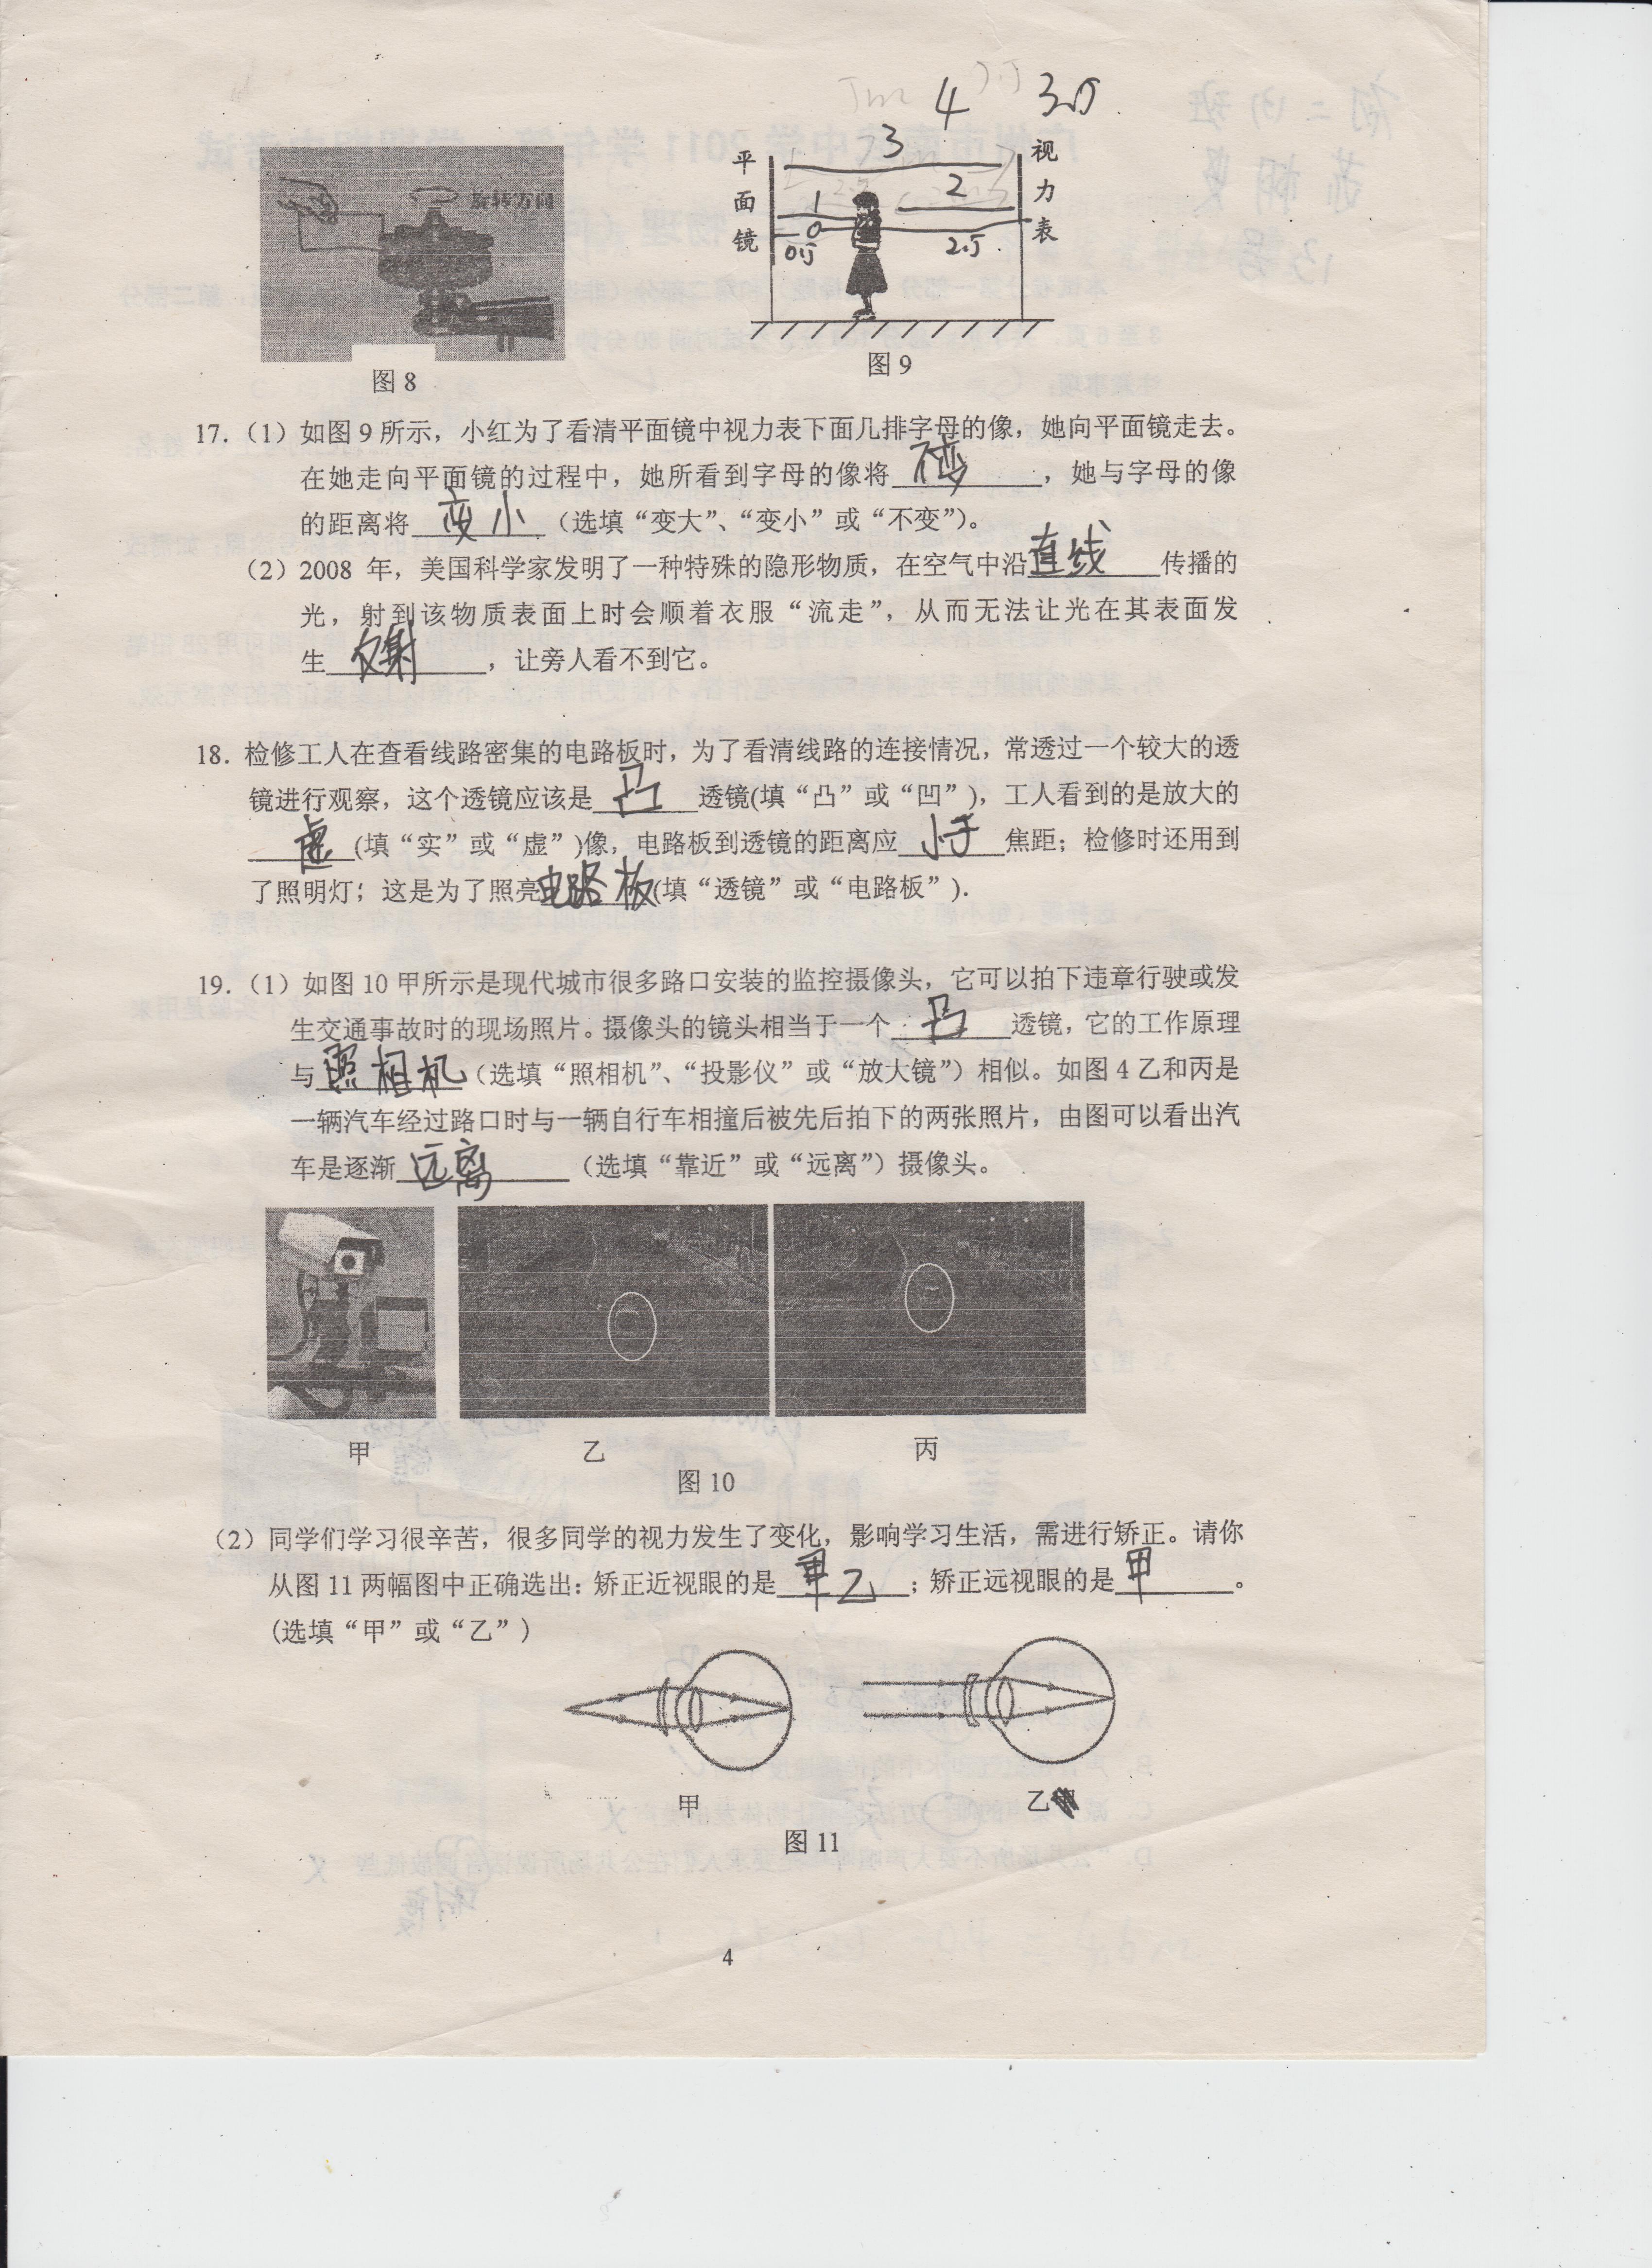 4 3.5
3
平 视
面 1 2 力
镜 0 表
0.5 2.5
旋转方向
图 8
图 9
17.（1）如图 9 所示，小红为了看清平面镜中视力表下面几排字母的像，她向平面镜走去。
在她走向平面镜的过程中，她所看到字母的像将 不变 ，她与字母的像
的距离将 变小 （选填“变大”、“变小”或“不变”）。
（2）2008 年，美国科学家发明了一种特殊的隐形物质，在空气中沿 直线 传播的
光，射到该物质表面上时会顺着衣服“流走”，从而无法让光在其表面发
生 反射 ，让旁人看不到它。
18．检修工人在查看线路密集的电路板时，为了看清线路的连接情况，常透过一个较大的透
镜进行观察，这个透镜应该是 凸 透镜(填“凸”或“凹”)，工人看到的是放大的
虚 (填“实”或“虚”)像，电路板到透镜的距离应 小于 焦距；检修时还用到
了照明灯；这是为了照亮 电路板 (填“透镜”或“电路板”).
19.（1）如图 10 甲所示是现代城市很多路口安装的监控摄像头，它可以拍下违章行驶或发
生交通事故时的现场照片。摄像头的镜头相当于一个 凸 透镜，它的工作原理
与 照相机 （选填“照相机”、“投影仪”或“放大镜”）相似。如图 4 乙和丙是
一辆汽车经过路口时与一辆自行车相撞后被先后拍下的两张照片，由图可以看出汽
车是逐渐 远离 （选填“靠近”或“远离”）摄像头。
甲 乙 丙
图 10
（2）同学们学习很辛苦，很多同学的视力发生了变化，影响学习生活，需进行矫正。请你
从图 11 两幅图中正确选出：矫正近视眼的是 乙 ；矫正远视眼的是 甲 。
(选填“甲”或“乙”)
甲 乙
图 11
4